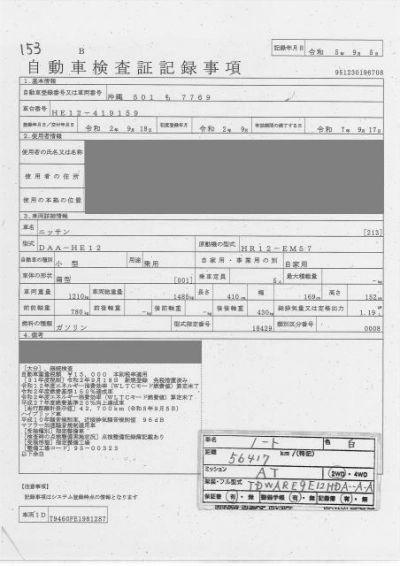 153
B
記録年月日 令和 5年 9月 5日
自動車検査証記録事項
951230196708
1.基本情報
自動車登録番号又は車両番号 沖縄 501 も 7769
車台番号 HE12-419159
登録年月日/交付年月日 令和 2年 9月 18日 初度登録年月 令和 2年 9月 有効期間の満了する日 令和 7年 9月 17日
2.使用者情報
使用者の氏名又は名称
使用者の住所
使用の本拠の位置
3.車両詳細情報
車名 ニッサン [213]
型式 DAA-HE12 原動機の型式 HR12-EM57
自動車の種別 小型 用途 乗用 自家用・事業用の別 自家用
車体の形状 箱型 [001] 乗車定員 5人 最大積載量 -kg
車両重量 1210kg 車両総重量 1485kg 長さ 410cm 幅 169cm 高さ 152cm
前前軸重 780kg 前後軸重 -kg 後前軸重 -kg 後後軸重 430kg 総排気量又は定格出力 1.19
燃料の種類 ガソリン 型式指定番号 16429 類別区分番号 0008
4.備考
自動車重量税額 ¥15,000 本則税率適用
[走行距離計表示値] 42,700km
ハイブリッド車
以下余白
車名 ノート 色 白
距離 56417 km/(特記)
ミッション AT 2WD・4WD
類・フル型式 TDWARE9E12HDA--A-A
保証書 有・無 整備手帳 有・無 記録簿 有・無
【注意事項】
記録事項はシステム登録時点の情報となります
車両ID T9460FE1981287